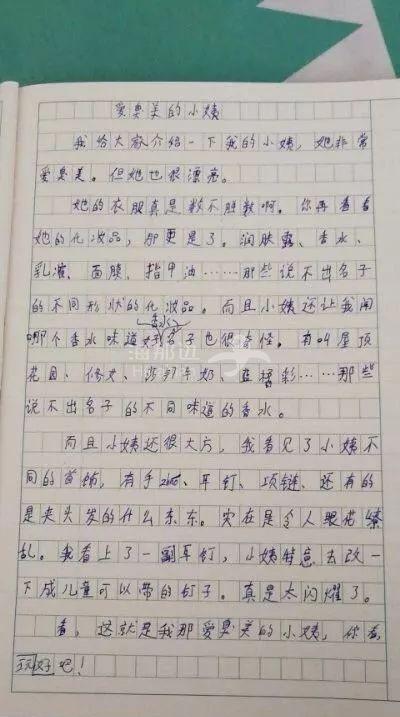 爱臭美的小姨
我给大家介绍一下我的小姨，她非常
爱臭美。但她也很漂亮。
她的衣服真是数不胜数啊。你再看看
她的化妆品，那更是了。润肤露、香水、
乳液、面膜、指甲油……那些说不出名子
的不同形状的化妆品。而且小姨还让我闻
香水
哪个香水味道好 名子也很奇怪。有叫屋顶
花园、修女、莎邦牛奶、蓝 彩……那些
说不出名子的不同味道的香水。
而且小姨还很大方，我看见了小姨不
同的首饰，有手 、耳钉、项链、还有的
是夹头发的什么东东。实在是令人眼花缭
乱。我看上了一副耳钉，小姨特意去改一
下成儿童可以带的钉子。真是太闪耀了。
看，这就是我那爱臭美的小姨，你看
好吧！
海那边